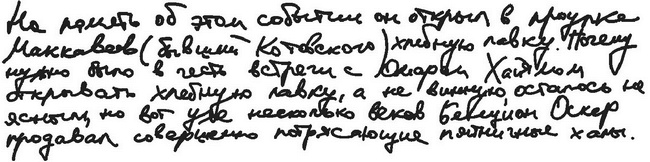 На память об этом событии он открыл в проулке
Маккавеев (бывший Котовского) хлебную лавку. Почему
нужно было в честь встречи с Оскаром Хаймом
открывать хлебную лавку, а не винную осталось не
ясным, но вот уже несколько веков Бенцион Оскер
продавал совершенно потрясающие пятничные халы.